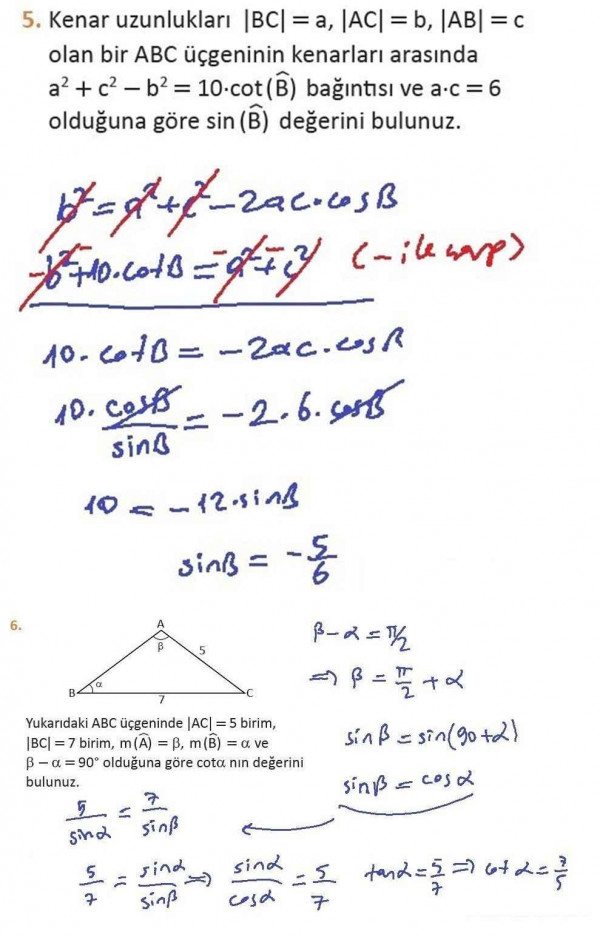 5. Kenar uzunlukları |BC| = a, |AC| = b, |AB| = c
olan bir ABC üçgeninin kenarları arasında
a² + c² − b² = 10·cot(B̂) bağıntısı ve a·c = 6
olduğuna göre sin(B̂) değerini bulunuz.
b² = a² + c² − 2ac·cosB
−b² + 10·cotB = −a² + −c² (− ile çarp)
10·cotB = −2ac·cosB
10·cosB/sinB = −2·6·cosB
10 = −12·sinB
sinB = −5/6
6.
A
β
5
B
α
7
C
Yukarıdaki ABC üçgeninde |AC| = 5 birim,
|BC| = 7 birim, m(Â) = β, m(B̂) = α ve
β − α = 90° olduğuna göre cotα nın değerini
bulunuz.
β − α = π/2
⇒ β = π/2 + α
sinβ = sin(90+α)
sinβ = cosα
5/sinα = 7/sinβ
5/7 = sinα/sinβ ⇒ sinα/cosα = 5/7 tanα = 5/7 ⇒ cotα = 7/5